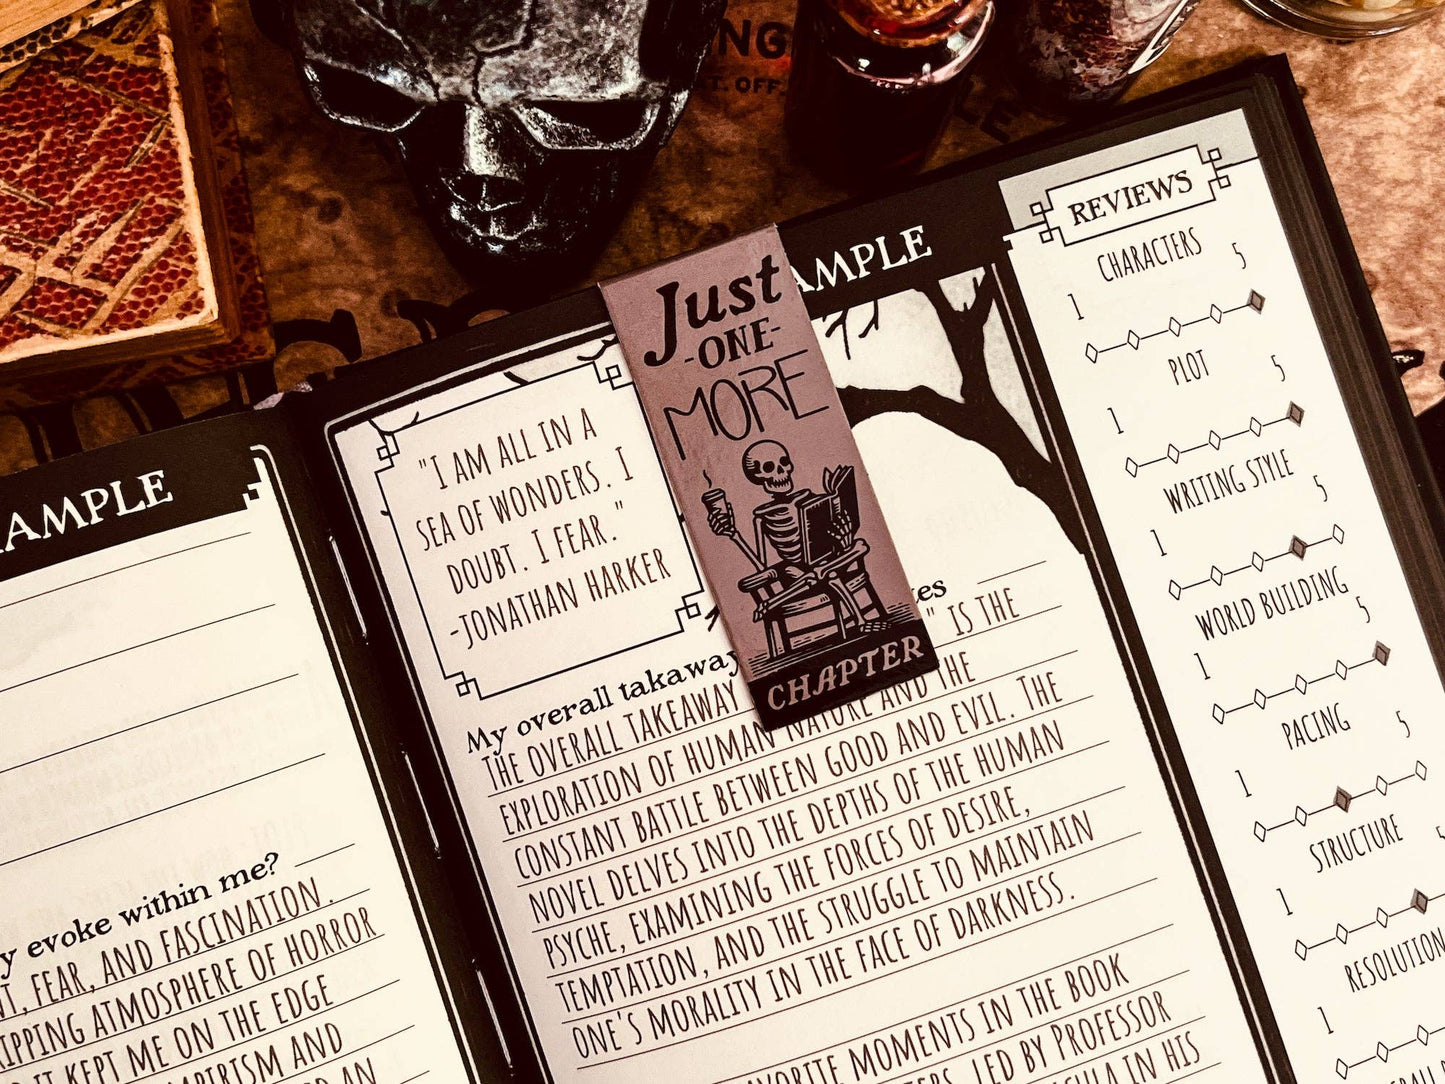 NG
T. OFF.
LE
AMPLE
y evoke within me?
T, FEAR, AND FASCINATION.
RIPPING ATMOSPHERE OF HORROR
IT KEPT ME ON THE EDGE
MPIRISM AND
AN
AMPLE
"I AM ALL IN A
SEA OF WONDERS. I
DOUBT. I FEAR."
-JONATHAN HARKER
Just
-ONE-
MORE
CHAPTER
My overall takeaway
es
THE OVERALL TAKEAWAY " IS THE
EXPLORATION OF HUMAN NATURE AND THE
CONSTANT BATTLE BETWEEN GOOD AND EVIL. THE
NOVEL DELVES INTO THE DEPTHS OF THE HUMAN
PSYCHE, EXAMINING THE FORCES OF DESIRE,
TEMPTATION, AND THE STRUGGLE TO MAINTAIN
ONE'S MORALITY IN THE FACE OF DARKNESS.
AVORITE MOMENTS IN THE BOOK
TERS, LED BY PROFESSOR
CULA IN HIS
REVIEWS
CHARACTERS
1 5
PLOT
1 5
WRITING STYLE
1 5
WORLD BUILDING
1 5
PACING
1 5
STRUCTURE
1 5
RESOLUTION
1